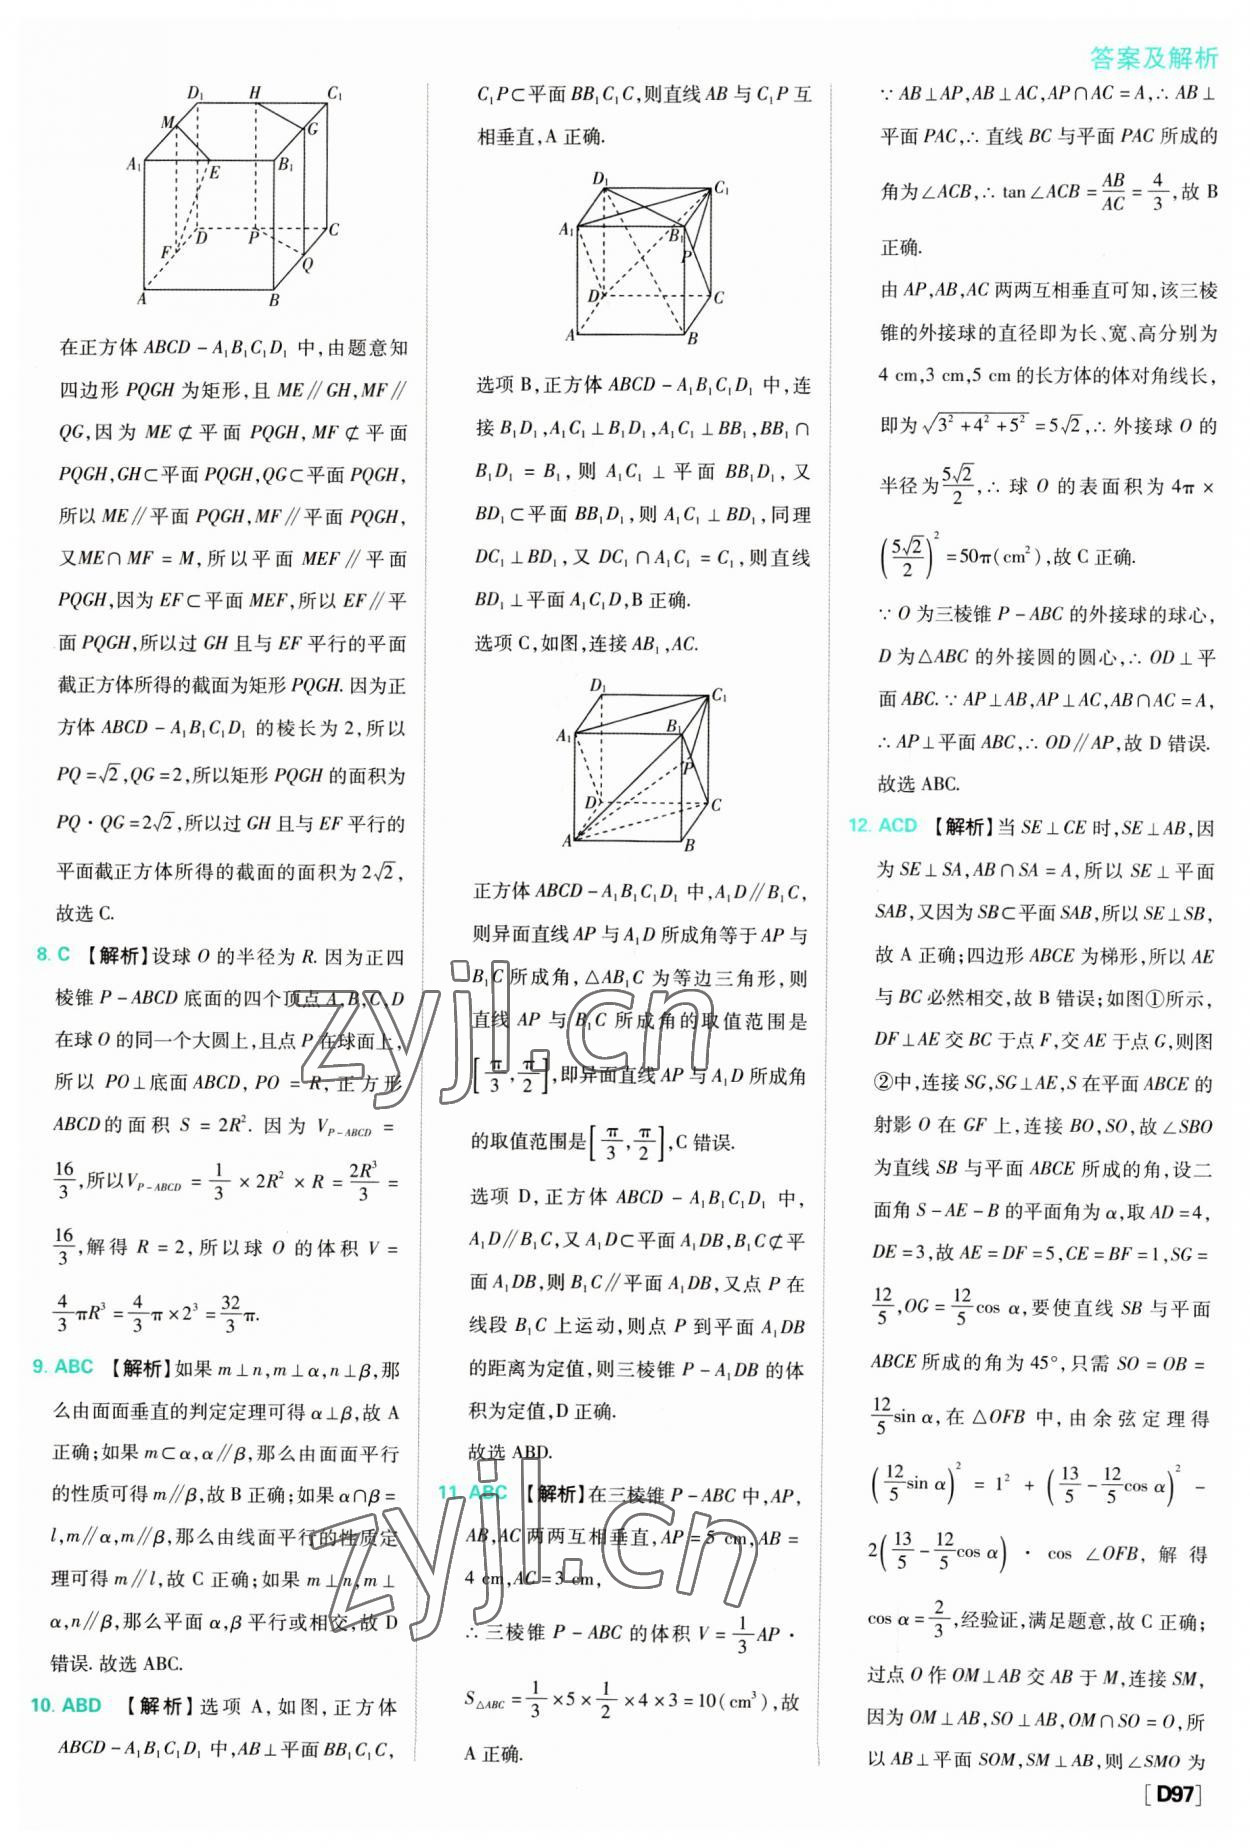 答案及解析
D₁ H C₁
M G
A₁ E B₁
F D P C
Q
A B
在正方体 ABCD－A₁B₁C₁D₁ 中,由题意知
四边形 PQGH 为矩形,且 ME∥GH,MF∥
QG,因为 ME⊄平面 PQGH,MF⊄平面
PQGH,GH⊂平面 PQGH,QG⊂平面 PQGH,
所以 ME∥平面 PQGH,MF∥平面 PQGH,
又ME∩MF＝M,所以平面 MEF∥平面
PQGH,因为 EF⊂平面 MEF,所以 EF∥平
面 PQGH,所以过 GH 且与 EF 平行的平面
截正方体所得的截面为矩形 PQGH. 因为正
方体 ABCD－A₁B₁C₁D₁ 的棱长为 2,所以
PQ＝√2,QG＝2,所以矩形 PQGH 的面积为
PQ·QG＝2√2,所以过 GH 且与 EF 平行的
平面截正方体所得的截面的面积为 2√2,
故选 C.
8. C 【解析】设球 O 的半径为 R. 因为正四
棱锥 P－ABCD 底面的四个顶点 A,B,C,D
在球 O 的同一个大圆上,且点 P 在球面上,
所以 PO⊥底面 ABCD, PO＝R, 正方形
ABCD的面积 S＝2R². 因为 V_{P－ABCD}＝
16/3,所以V_{P－ABCD}＝1/3×2R²×R＝2R³/3＝
16/3,解得 R＝2,所以球 O 的体积 V＝
4/3πR³＝4/3π×2³＝32/3π.
9. ABC 【解析】如果 m⊥n,m⊥α,n⊥β,那
么由面面垂直的判定定理可得 α⊥β,故 A
正确;如果 m⊂α,α∥β,那么由面面平行
的性质可得 m∥β,故 B 正确;如果 α∩β＝
l,m∥α,m∥β,那么由线面平行的性质定
理可得 m∥l,故 C 正确;如果 m⊥n,m⊥
α,n∥β,那么平面 α,β 平行或相交,故 D
错误. 故选 ABC.
10. ABD 【解析】选项 A,如图,正方体
ABCD－A₁B₁C₁D₁ 中,AB⊥平面 BB₁C₁C,
C₁P⊂平面 BB₁C₁C,则直线 AB 与 C₁P 互
相垂直,A 正确.
D₁ C₁
A₁ B₁
P
D C
A B
选项 B,正方体 ABCD－A₁B₁C₁D₁ 中,连
接 B₁D₁,A₁C₁⊥B₁D₁,A₁C₁⊥BB₁,BB₁∩
B₁D₁＝B₁,则 A₁C₁⊥平面 BB₁D₁,又
BD₁⊂平面 BB₁D₁,则 A₁C₁⊥BD₁,同理
DC₁⊥BD₁,又 DC₁∩A₁C₁＝C₁,则直线
BD₁⊥平面 A₁C₁D,B 正确.
选项 C,如图,连接 AB₁,AC.
D₁ C₁
A₁ B₁
P
D C
A B
正方体 ABCD－A₁B₁C₁D₁ 中,A₁D∥B₁C,
则异面直线 AP 与 A₁D 所成角等于 AP 与
B₁C 所成角,△AB₁C 为等边三角形,则
直线 AP 与 B₁C 所成角的取值范围是
[π/3,π/2],即异面直线 AP 与 A₁D 所成角
的取值范围是[π/3,π/2],C 错误.
选项 D,正方体 ABCD－A₁B₁C₁D₁ 中,
A₁D∥B₁C,又 A₁D⊂平面 A₁DB,B₁C⊄平
面 A₁DB,则 B₁C∥平面 A₁DB,又点 P 在
线段 B₁C 上运动,则点 P 到平面 A₁DB
的距离为定值,则三棱锥 P－A₁DB 的体
积为定值,D 正确.
故选 ABD.
11. ABC 【解析】在三棱锥 P－ABC 中,AP,
AB,AC 两两互相垂直,AP＝5 cm,AB＝
4 cm,AC＝3 cm,
∴三棱锥 P－ABC 的体积 V＝1/3AP·
S_{△ABC}＝1/3×5×1/2×4×3＝10(cm³),故
A 正确.
∵AB⊥AP,AB⊥AC,AP∩AC＝A,∴AB⊥
平面 PAC,∴直线 BC 与平面 PAC 所成的
角为∠ACB,∴tan∠ACB＝AB/AC＝4/3,故 B
正确.
由 AP,AB,AC 两两互相垂直可知,该三棱
锥的外接球的直径即为长、宽、高分别为
4 cm,3 cm,5 cm 的长方体的体对角线长,
即为√(3²+4²+5²)＝5√2,∴外接球 O 的
半径为5√2/2,∴球 O 的表面积为 4π×
(5√2/2)²＝50π(cm²),故 C 正确.
∵O 为三棱锥 P－ABC 的外接球的球心,
D 为△ABC 的外接圆的圆心,∴OD⊥平
面 ABC.∵AP⊥AB,AP⊥AC,AB∩AC＝A,
∴AP⊥平面 ABC,∴OD∥AP,故 D 错误.
故选 ABC.
12. ACD 【解析】当 SE⊥CE 时,SE⊥AB,因
为 SE⊥SA,AB∩SA＝A,所以 SE⊥平面
SAB,又因为 SB⊂平面 SAB,所以 SE⊥SB,
故 A 正确;四边形 ABCE 为梯形,所以 AE
与 BC 必然相交,故 B 错误;如图①所示,
DF⊥AE 交 BC 于点 F,交 AE 于点 G,则图
②中,连接 SG,SG⊥AE,S 在平面 ABCE 的
射影 O 在 GF 上,连接 BO,SO,故∠SBO
为直线 SB 与平面 ABCE 所成的角,设二
面角 S－AE－B 的平面角为 α,取 AD＝4,
DE＝3,故 AE＝DF＝5,CE＝BF＝1,SG＝
12/5,OG＝12/5cos α,要使直线 SB 与平面
ABCE 所成的角为 45°,只需 SO＝OB＝
12/5sin α,在△OFB 中,由余弦定理得
(12/5sin α)²＝1²＋(13/5－12/5cos α)²－
2(13/5－12/5cos α)·cos∠OFB, 解得
cos α＝2/3,经验证,满足题意,故 C 正确;
过点 O 作 OM⊥AB 交 AB 于 M,连接 SM,
因为 OM⊥AB,SO⊥AB,OM∩SO＝O,所
以 AB⊥平面 SOM,SM⊥AB,则∠SMO 为
zyjl.cn
zyjl.cn
[D97]